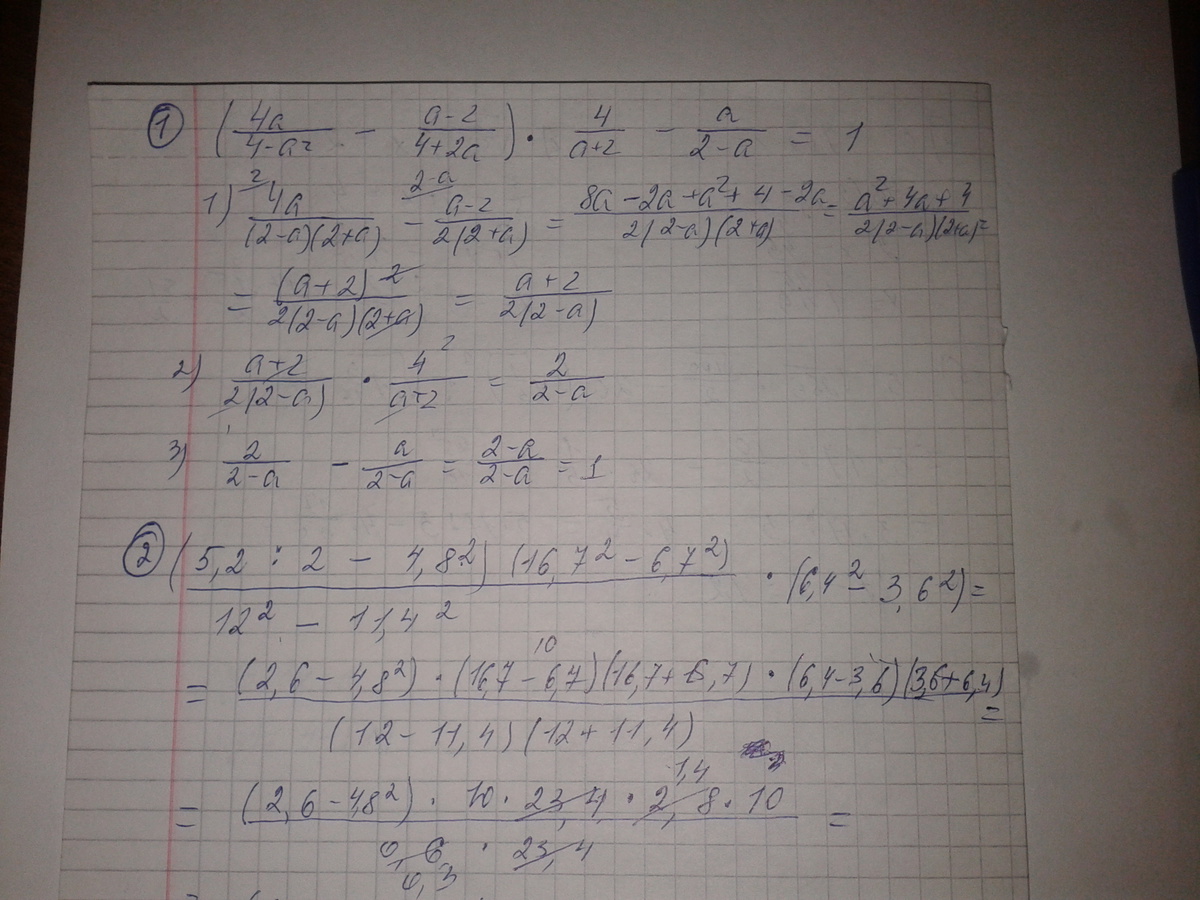 ① (4a/(4-a²) - (a-2)/(4+2a)) · 4/(a+2) - a/(2-a) = 1
1) ²⁄ 4a/((2-a)(2+a)) - ²⁻ᵃ⁄ (a-2)/(2(2+a)) = (8a-2a+a²+4-2a)/(2(2-a)(2+a)) = (a²+4a+4)/(2(2-a)(2+a)) =
= (a+2)²/(2(2-a)(2+a)) = (a+2)/(2(2-a))
2) (a+2)/(2(2-a)) · 4²/(a+2) = 2/(2-a)
3) 2/(2-a) - a/(2-a) = (2-a)/(2-a) = 1
② (5,2 : 2 - 4,8²) (16,7² - 6,7²)/(12² - 11,4²) · (6,4² - 3,6²) =
= (2,6 - 4,8²) · (16,7 - 6,7)(16,7 + 6,7) · (6,4 - 3,6)(3,6 + 6,4)/((12 - 11,4)(12 + 11,4)) =
10
= (2,6 - 4,8²) · 10 · 23,4 · 2,8 · 10/(0,6 · 23,4) =
1,4
0,3